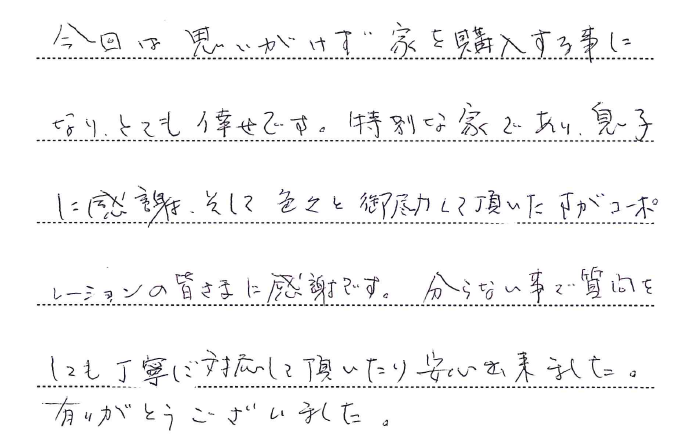 今回は思いがけず家を購入する事に
なり、とても倖せです。特別な家であり、息子
に感謝、そして色々と御尽力して頂いたすがコーポ
レーションの皆さまに感謝です。分らない事で質問を
しても丁寧に対応して頂いたり安心出来ました。
有りがとうございました。